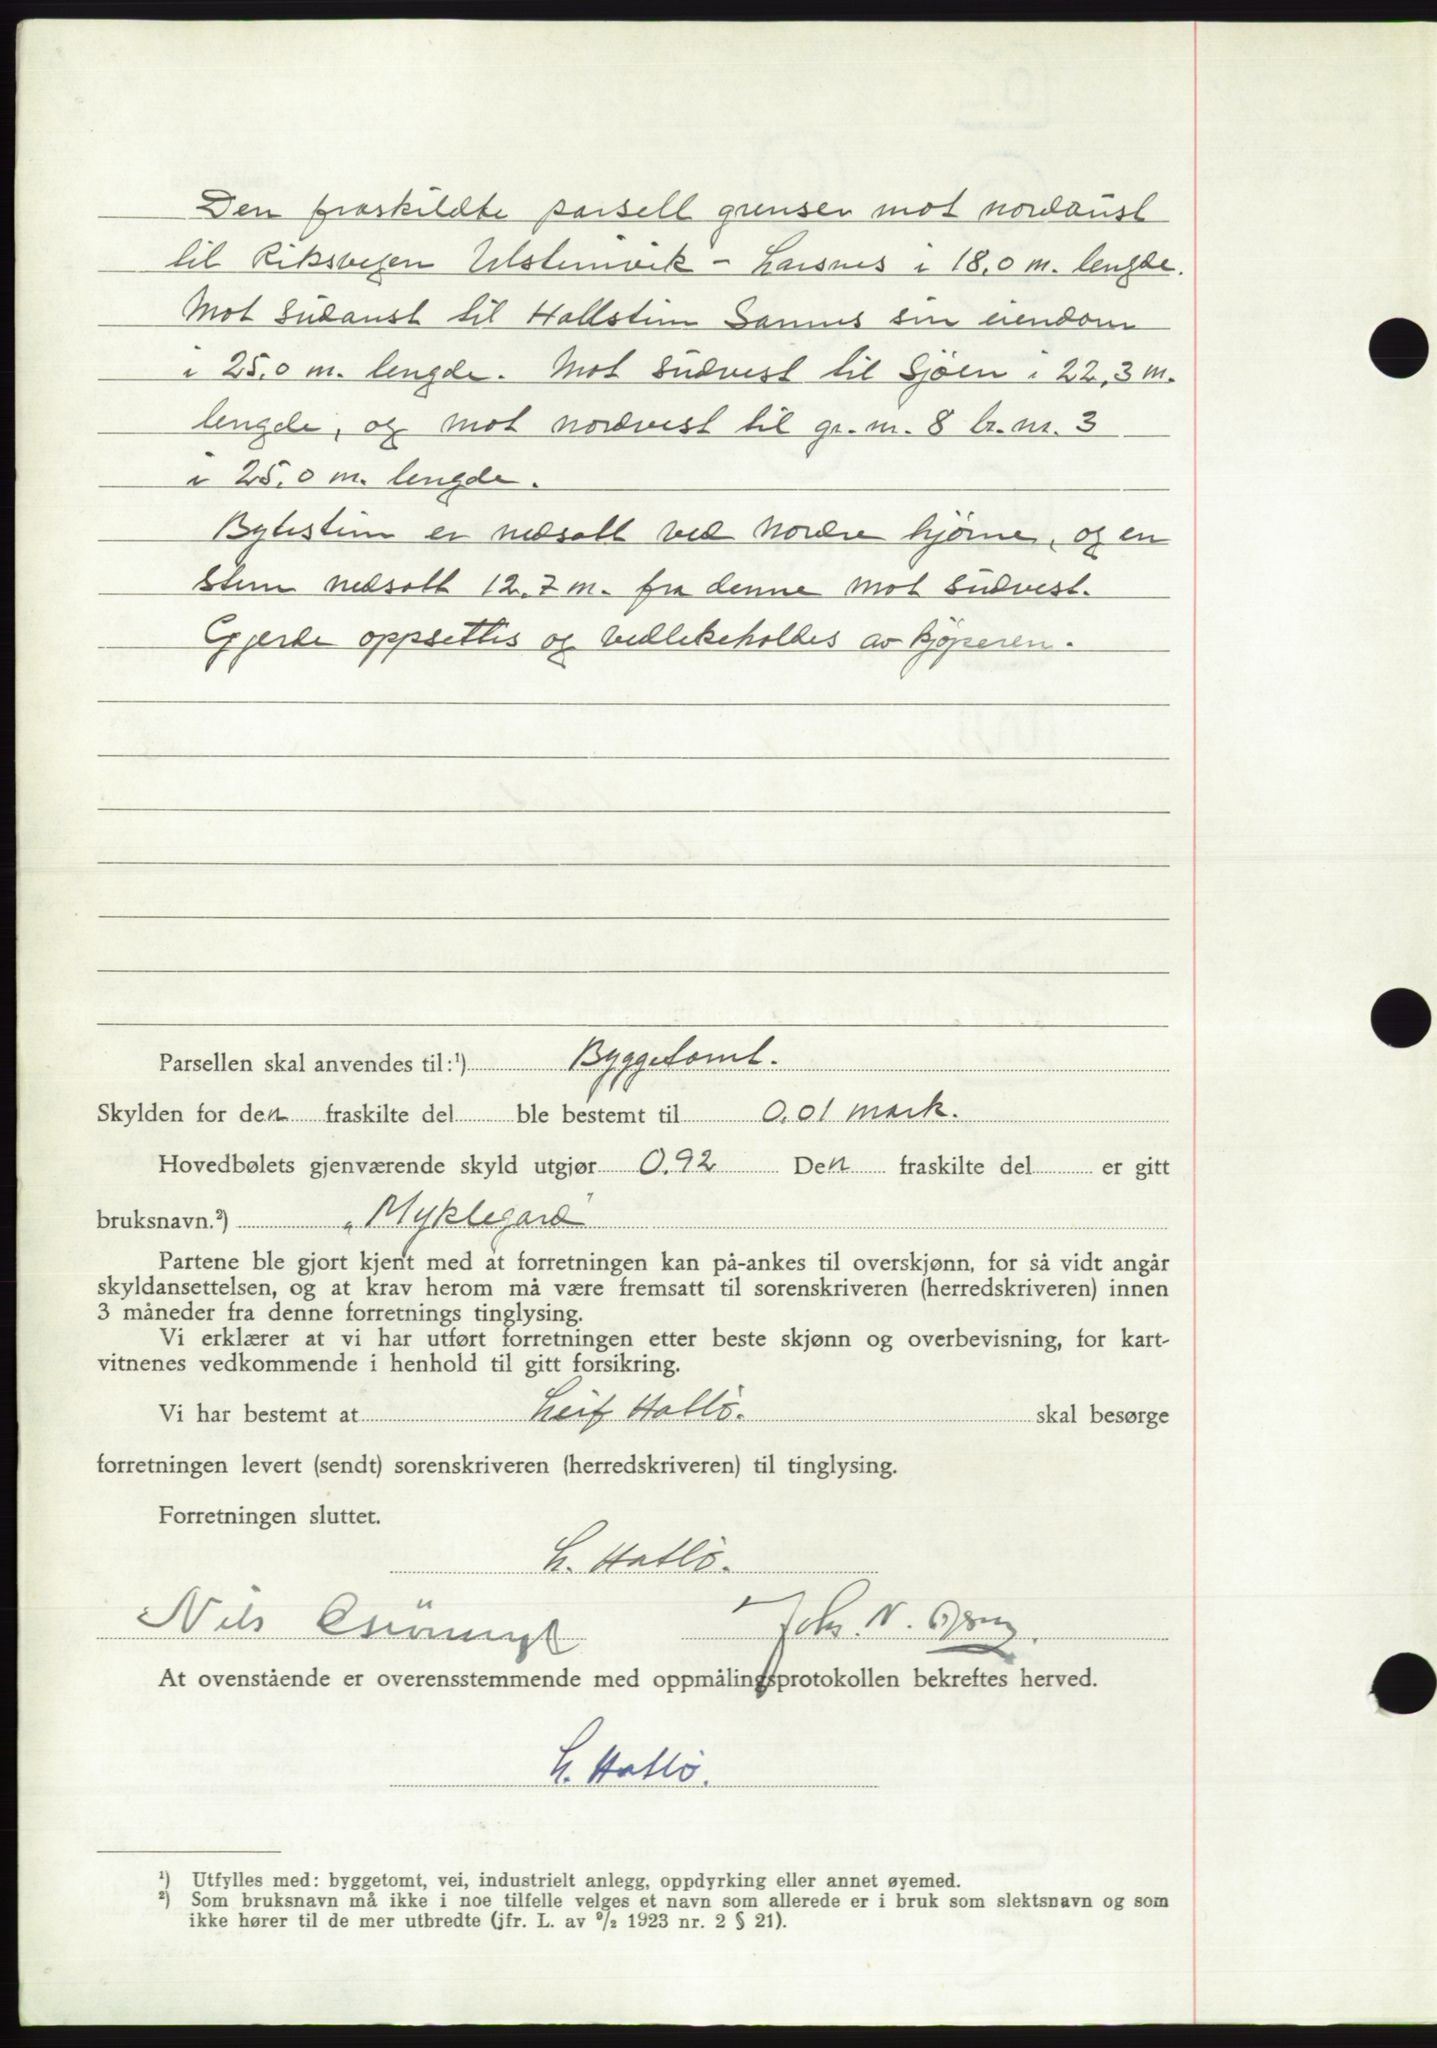 Den fraskildte parsell grenser mot nordaust
til Riksvegen Ulsteinvik - Larsnes i 18,0 m. lengde.
Mot südaust til Hallstein Sannes sin eiendom
i 25,0 m. lengde. Mot südvest til Sjøen i 22,3 m.
lengde, og mot nordvest til gr. nr. 8 br. nr. 3
i 25,0 m. lengde.
Bytestein er nedsatt ved nordre hjørne, og en
stein nedsatt 12,7 m. fra denne mot südvest.
Gjerde oppsettes og vedlikeholdes av kjøperen.
Parsellen skal anvendes til:¹) Byggetomt.
Skylden for den fraskilte del ble bestemt til 0,01 mark.
Hovedbølets gjenværende skyld utgjør 0,92 Den fraskilte del er gitt
bruksnavn.²) „Myklegard"
Partene ble gjort kjent med at forretningen kan på-ankes til overskjønn, for så vidt angår
skyldansettelsen, og at krav herom må være fremsatt til sorenskriveren (herredskriveren) innen
3 måneder fra denne forretnings tinglysing.
Vi erklærer at vi har utført forretningen etter beste skjønn og overbevisning, for kart-
vitnenes vedkommende i henhold til gitt forsikring.
Vi har bestemt at Leif Hatlö. skal besørge
forretningen levert (sendt) sorenskriveren (herredskriveren) til tinglysing.
Forretningen sluttet.
L. Hatlö.
Nils Johs. N.
At ovenstående er overensstemmende med oppmålingsprotokollen bekreftes herved.
L. Hatlö.
¹) Utfylles med: byggetomt, vei, industrielt anlegg, oppdyrking eller annet øyemed.
²) Som bruksnavn må ikke i noe tilfelle velges et navn som allerede er i bruk som slektsnavn og som
ikke hører til de mer utbredte (jfr. L. av ⁹/₂ 1923 nr. 2 § 21).